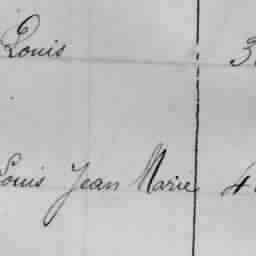 Louis 3
Louis Jean Marie 4